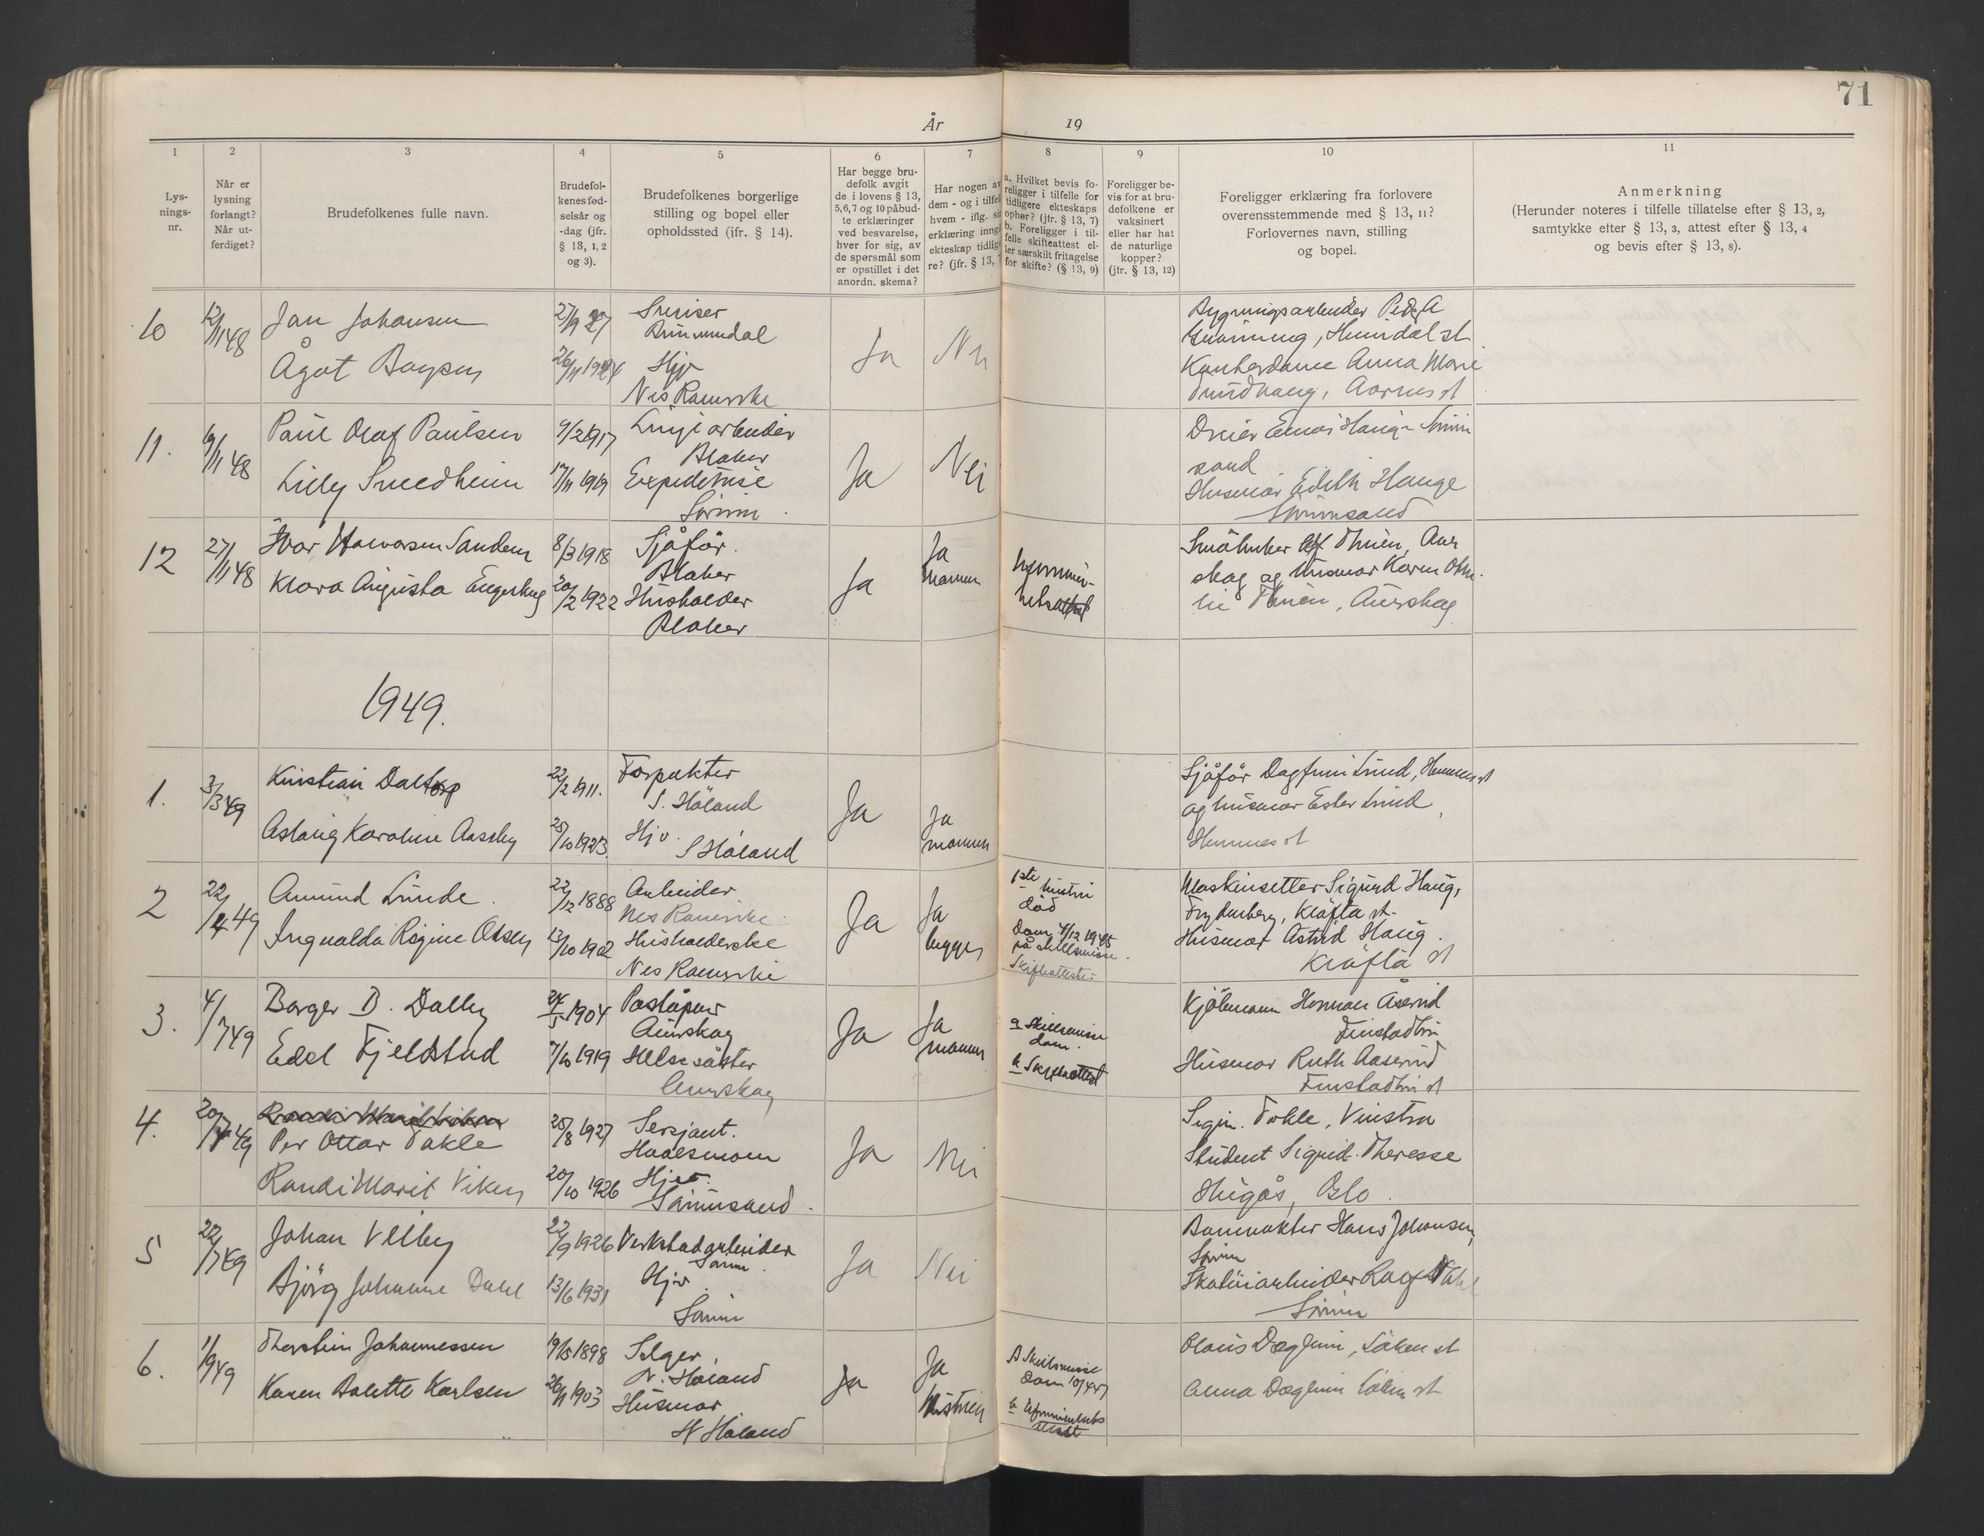 71
År 19
1 2 3 4 5 6 7 8 9 10 11
Lys-
nings-
nr.
Når er
lysning
forlangt?
Når ut-
ferdiget?
Brudefolkenes fulle navn.
Brudefol-
kenes fød-
selsår og
-dag (jfr.
§ 13, 1, 2
og 3).
Brudefolkenes borgerlige
stilling og bopel eller
opholdssted (ifr. § 14).
Har begge bru-
defolk avgit
de i lovens § 13,
5,6,7 og 10 påbud-
te erklæringer
ved besvarelse,
hver for sig, av
de spørsmål som
er opstillet i det
anordn. skema?
Har nogen av
dem - og i tilfel
hvem - iflg. si
erklæring inng
ekteskap tidlig
re? (jfr. § 13,
a. Hvilket bevis fo-
religger i tilfelle for
tidligere ekteskaps
ophør? (jfr. § 13, 7)
b. Foreligger i til-
felle skifteattest el-
ler særskilt fritagelse
for skifte? (§ 13, 9)
Foreligger be-
vis for at bru-
defolkene er
vaksinert
eller har hat
de naturlige
kopper?
(jfr. § 13, 12)
Foreligger erklæring fra forlovere
overensstemmende med § 13, 11?
Forlovernes navn, stilling
og bopel.
Anmerkning
(Herunder noteres i tilfelle tillatelse efter § 13, 2,
samtykke efter § 13, 3, attest efter § 13, 4
og bevis efter § 13, 8).
10 12/11 48 Jan Johansen 27/9 27
Brumunddal
Ågot 26/11 1924 Hjv
Nes Romerike
Ja Nei
Bygningsarbeider
Kontordame Anna Marie
Aarnes st
11. 19/11 48 Paul Olaf Paulsen 9/2 1917 Linjearbeider
Blaker
Lilly 17/11 1919 Expeditrise
Sørum.
Ja Nei
Dreier Einar Hauge Sørum
sand
Husmor Edith Hauge
Sørumsand
12 27/11 48 Ivar Halvorsen Sanden 8/3 1918 Sjåfør.
Blaker
Klara Augusta 20/2 1922 Husholder
Blaker
Ja Ja
mannen
Småbruker Thuen, Aur
skog og husmor Karen
Thuen, Aurskog
1949.
1. 3/3 49 Kristian Daltorp 22/2 1911. Forpakter
S. Høland
Aslaug Karoline Aaseby 25/10 1923. Hjv.
S Høland
Ja Ja
mannen
Sjåfør Dagfinn Lund, Hemnes st
og husmor Ester Lund,
Hemnes st
2 22/4 49 Amund Lunde. 22/12 1888 Arbeider
Nes Romerike.
Ingvalda Regine Olsen 13/10 1902 Husholderske
Nes Romerike
Ja Ja
begge
1ste hustru
død
Dom 4/12 1945
på skilsmisse.
Skifteattest
Maskinsetter Sigurd Haug,
Frydenberg, Kløfta st.
Husmor Astrid Haug.
Kløfta st
3. 4/7 49 Borger D. Dalby 24/5 1904 Poståpner
Aurskog
Edel Fjeldstad 7/10 1919 Helsesøster
Aurskog
Ja Ja
mannen
a Skilsmisse
dom.
b Skifteattest
Kjøbmann Herman Åserud
Finstadbru
Husmor Ruth Aaserud
Finstadbru st
4. 20/7 49 Per Ottar Tokle 25/8 1927 Sersjant.
Haslemoen
Randi Marit Viken 20/10 1926 Hjv.
Sørumsand.
Ja Nei
Tokle, Vinstra
Student Sigrid Therese
Oslo.
5 22/7 49 Johan Velby 22/9 1926 Verkstadarbeider
Sørum.
Bjørg Johanne Dahl 13/6 1931 Hjv.
Sørum
Ja Nei
Banevokter Hans Johansen,
Sørum
Skotøiarbeider Dahl
Sørum
6. 1/9 49 Thorstein Johannessen 19/5 1898 Selger,
N. Høland
Karen Bolette Karlsen 26/11 1903 Husmor
N Høland
Ja Ja
hustruen
A Skilsmisse
dom 10/4 47
b
attest
Olaus Døglum, Løken st
Anna Døglum Løken st